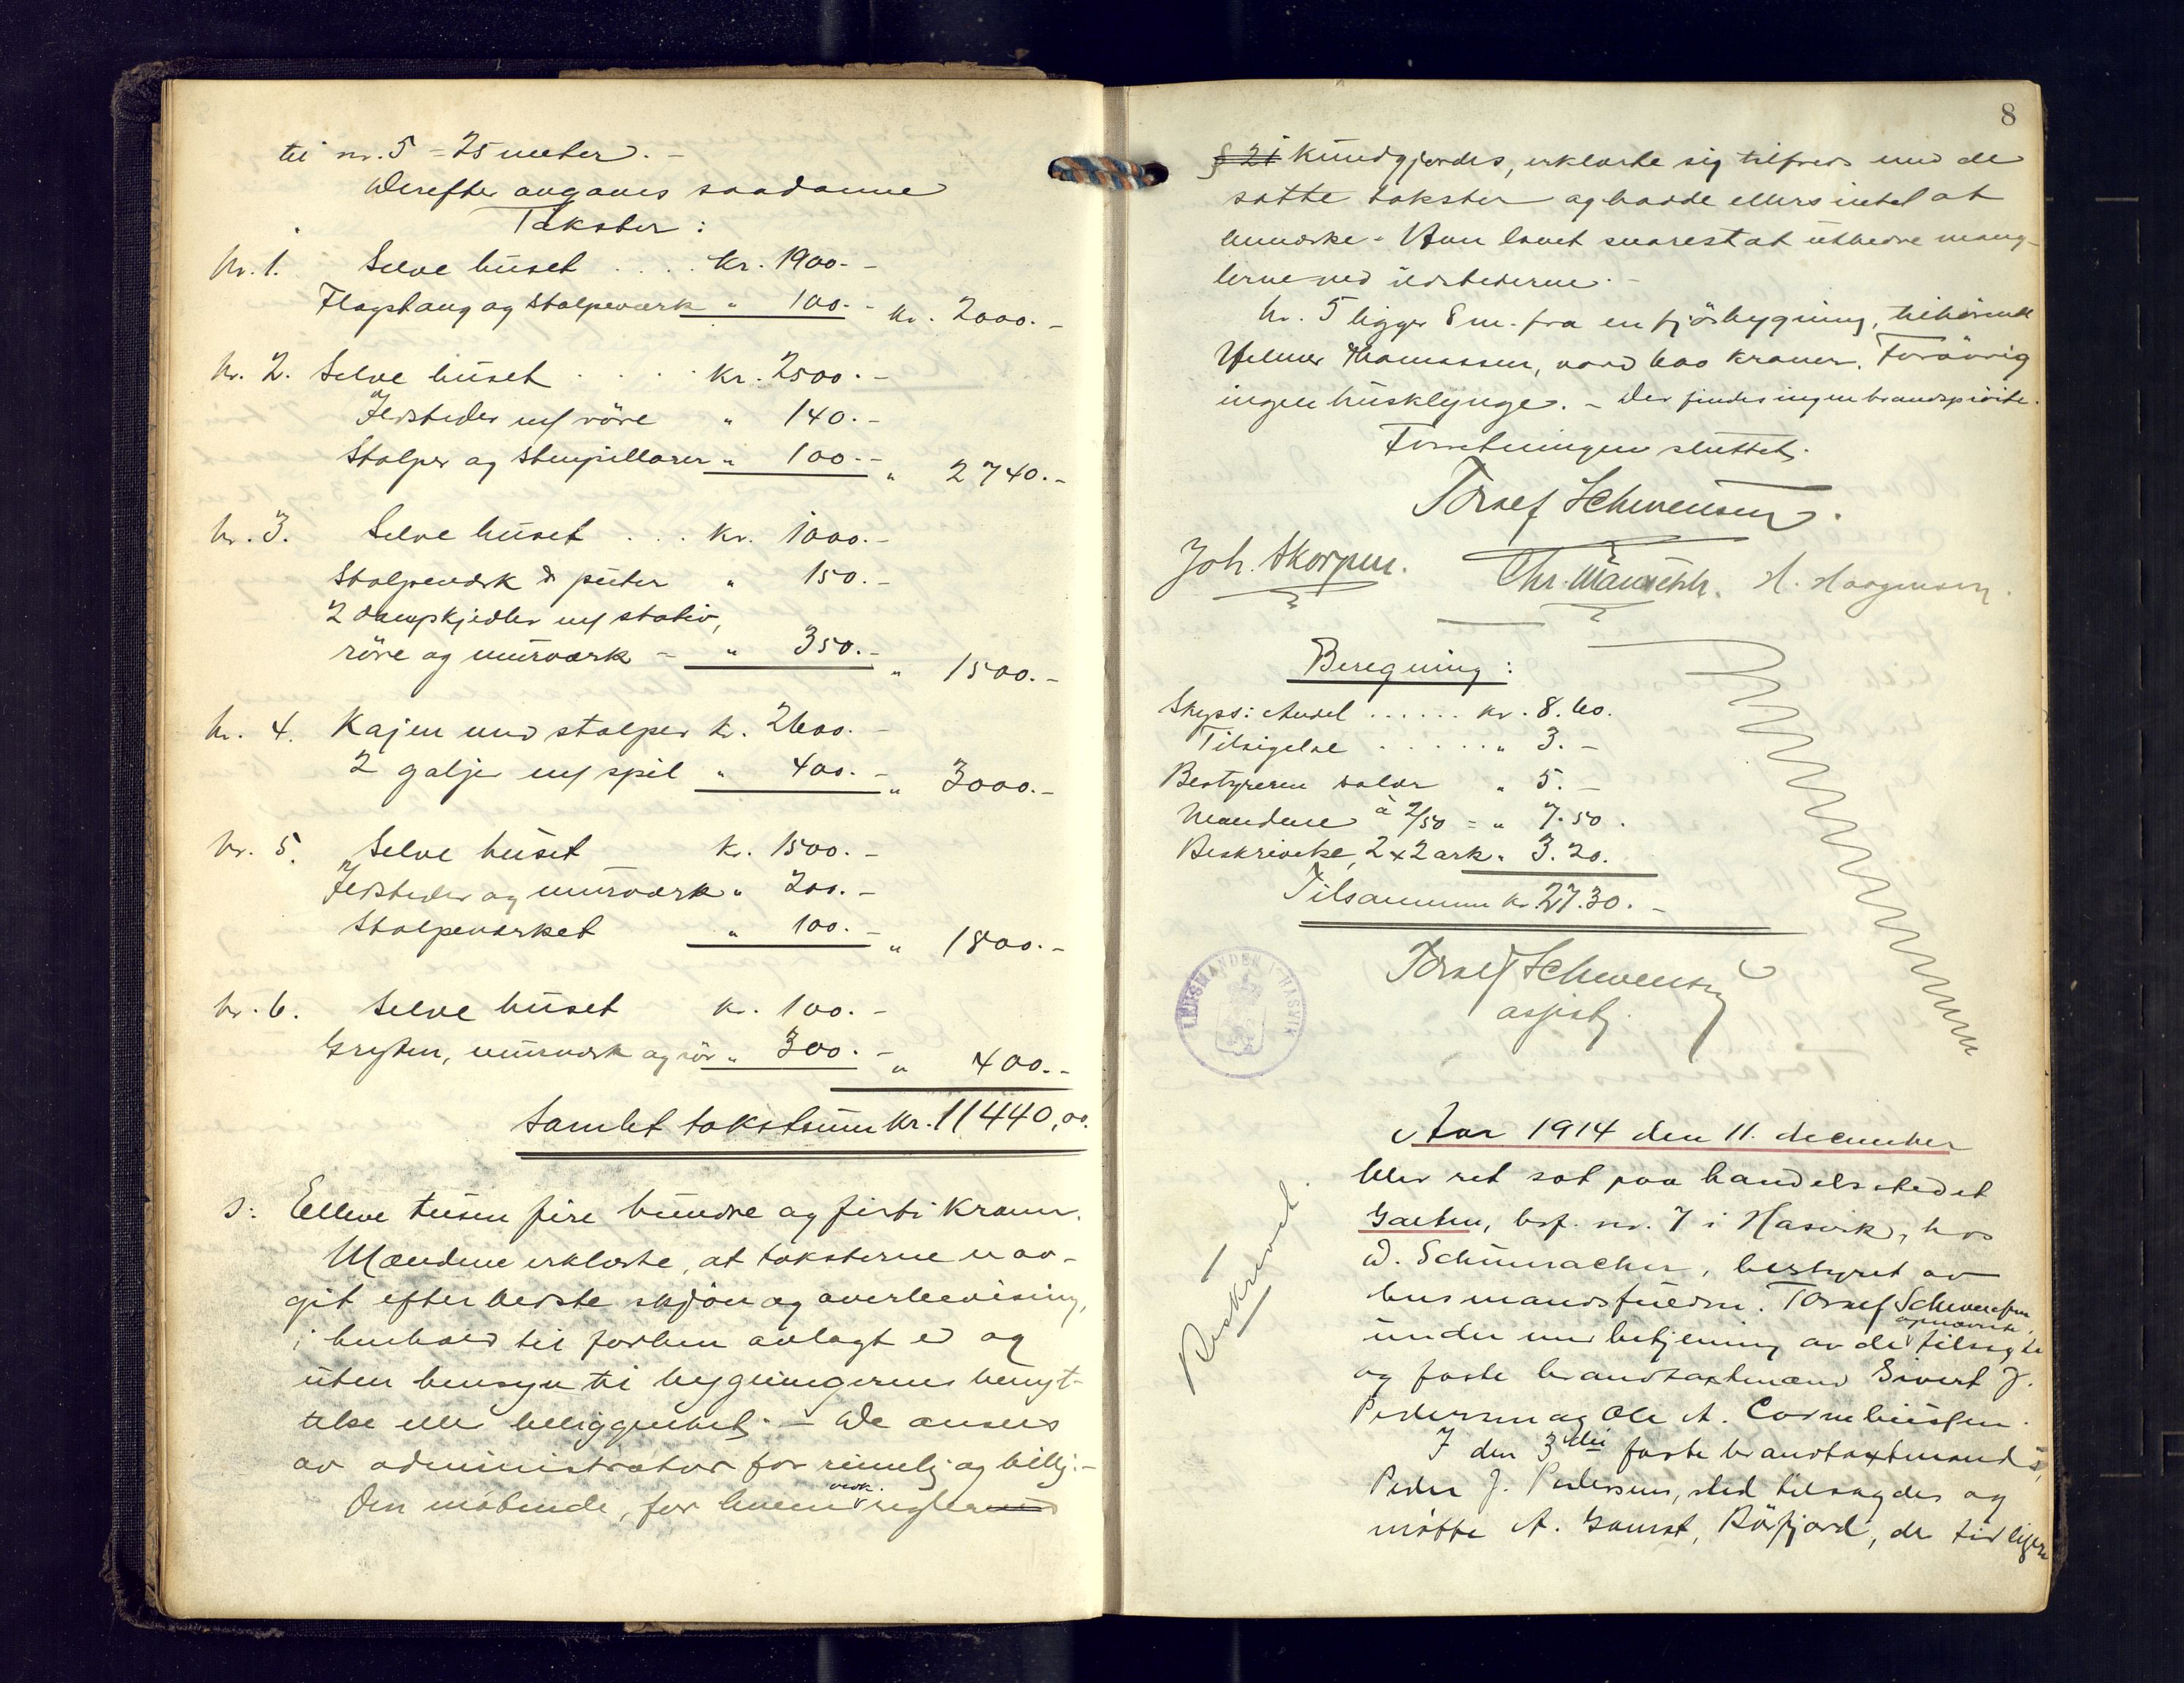 til nr. 5 = 25 meter. -
Derefter angaves saadanne
Takster:
Nr. 1. Selve huset .... kr. 1900.-
Flagstang og stolpeværk " 100.- kr. 2000.-
Nr. 2. Selve huset .... kr. 2500.-
Ildsteder m/ röre " 140.-
Stolper og stenpillarer " 100.- " 2740.-
Nr. 3. Selve huset ... kr. 1000.-
Stolpeværk & puter " 150.-
2 dampkjedler m/ stativ,
röre og murværk - " 350.- " 1500.-
Nr. 4. Kajen med stolper kr. 2600.-
2 galjer m/ spil " 400.- " 3000.-
Nr. 5. Selve huset kr. 1500.-
Ildsteder og murværk " 200.-
Stolpeværket " 100.- " 1800.-
Nr. 6. Selve huset kr. 100.-
Gryten, murværk og rör " 300.- " 400.-
Samlet takstsum kr. 11440,00.
s: Elleve tusen fire hundre og firti kroner.
Mændene erklærte, at taksterne er av-
git efter bedste skjön og overbevisning,
i henhold til forhen avlagt ed og
uten hensyn til bygningernes benyt-
telse eller beliggenhet. - De ansees
av administrator for rimelig og billig.-
Den mötende, for hvem vedk. regler
8
§ 21 kundgjordes, erklærte sig tilfreds med de
satte takster og havde ellers intet at
bemærke. Han lovet snarest at utbedre mang-
lerne ved ildstederne. -
Nr. 5 ligger 8 m. fra en fjösbygning, tilhörende
Hilmer Thomassen, værd 600 kroner. Forövrig
ingen husklynge. - Der findes ingen brandspröite.
Forretningen sluttet.
Toralf Schwensen.
Joh. Skorpen. Chr. H. Haagensen.
Beregning:
Skyss: Andel ...... kr. 8.60.
Tilsigelse ...... " 3.-
Bestyreren salær " 5.-
Mændene à 2/50 = " 7.50.
Beskrivelse, 2 x 2 ark " 3.20.
Tilsammen kr. 27.30.-
Toralf Schwensen
LENSMANDEN I HASVIK
Beskrevet.
Aar 1914 den 11. december
blev ret sat paa handelsstedet
Gaashn, brf. nr. 7 i Hasvik, hos
W. Schumacher, bestyret av
lensmandsfuldm. Toralf Schwensen,
under medbetjening av de opnævnte, tilsagte
og faste brandtaxtmænd Sivert J.
Pedersen og Ole A. Corneliussen.
I den 3die faste brandtaxtmands,
Peder J. Pedersens, sted tilsagdes og
mötte A. Gamst, Börfjord, der tidligere